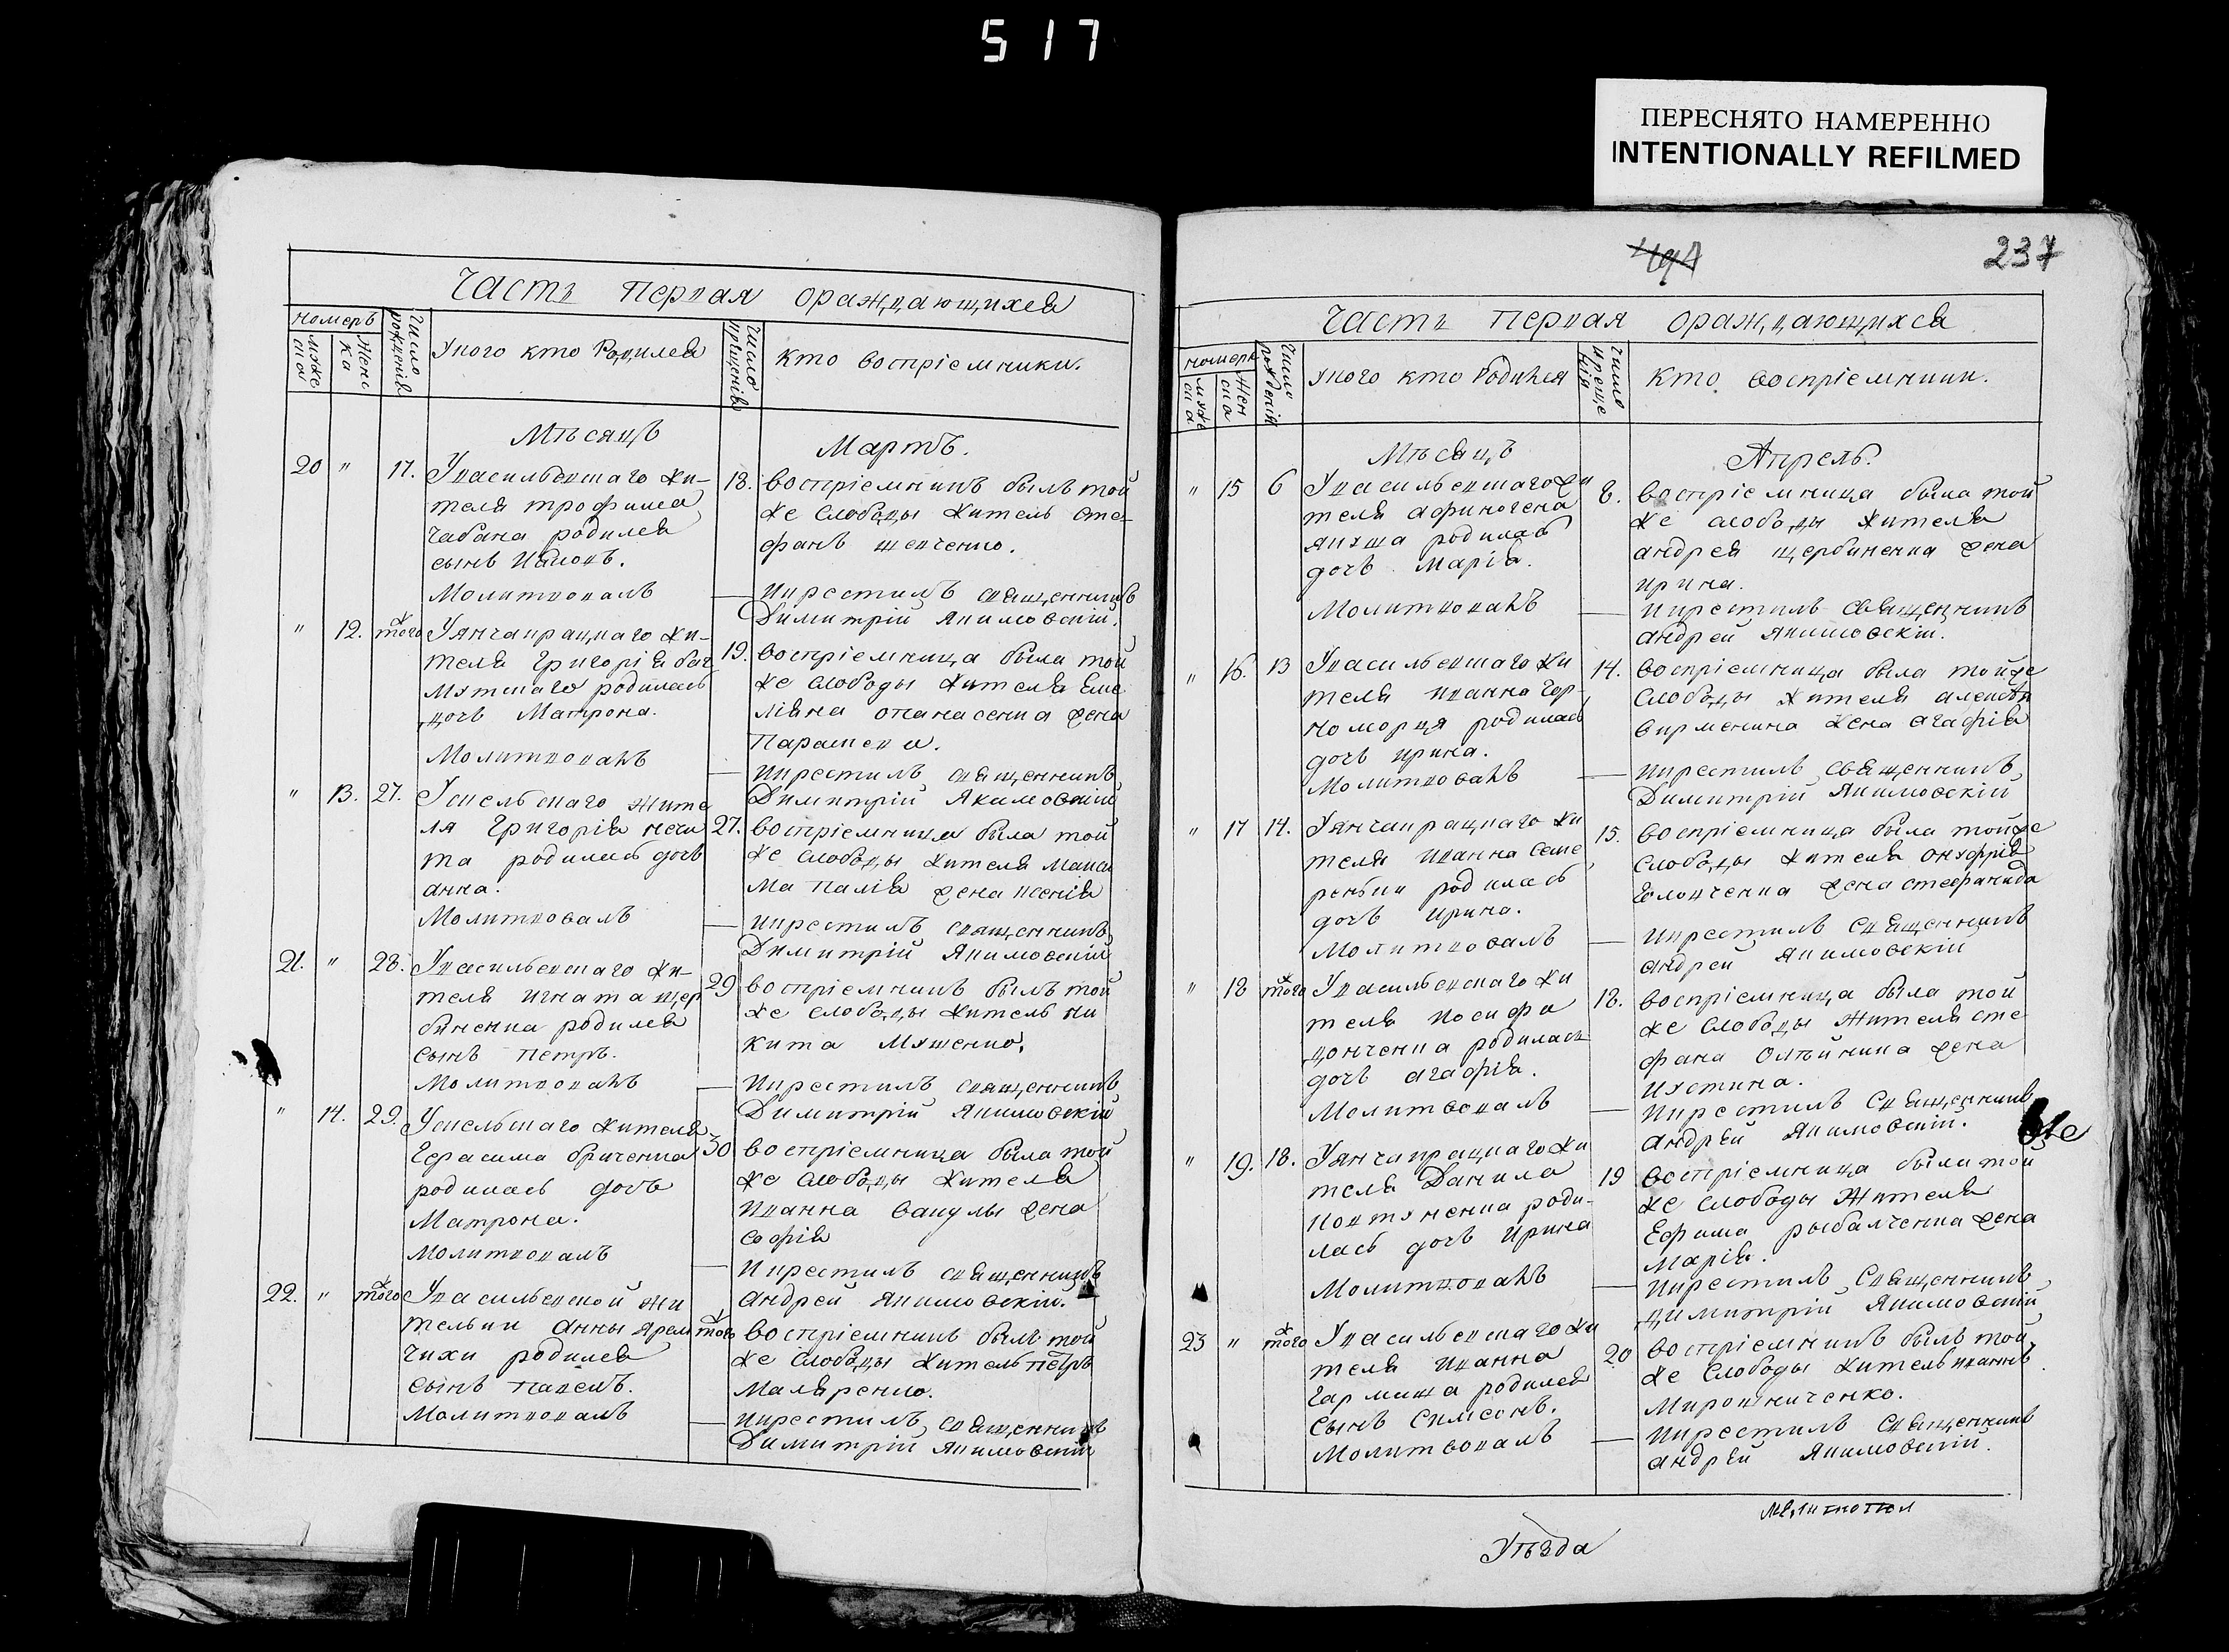 517
ПЕРЕСНЯТО НАМЕРЕННО
INTENTIONALLY REFILMED
237
Часть первая ораждающихся
номеръ
муже ска
женс ка
Число рожденія
Укого кто Родился
Число крещенія
кто воспріемники.
Мѣсяцъ Мартъ.
20 " 17. Увасильевскаго жи-
теля трофима
Чабана родился
сынъ Иаковъ.
Молитвовалъ
18. воспріемникъ былъ той
же слободы житель сте-
фанъ шевченко.
— Икрестилъ священникъ
Димитрій Якимовскій.
" 12. тогож Уянчакрацкаго жи-
теля Григорія бах
мутскаго родилась
дочь Матрона.
Молитвовалъ
19. воспріемница была той
же слободы жителя Еме
ліяна опанасенка жена
Параскева.
— Икрестилъ священникъ
Димитрій Якимовскій
" 13. 27. Успельскаго жите
ля Григорія
та родилась дочь
анна.
Молитвовалъ
27. воспріемница была той
же слободы жителя макси
ма палія жена ксенія
— Икрестилъ священникъ
Димитрій Якимовскій
21. " 28. Увасильевскаго жи-
теля игната щер
биненка родился
сынъ петръ.
Молитвовалъ
29 воспріемникъ былъ той
же слободы житель ни
кита Мушенко.
— Икрестилъ священникъ
Димитрій Якимовскій
" 14. 29. жителя
Герасима бриченка
родилась дочь
Матрона.
молитвовалъ
30 воспріемница была той
же слободы жителя
Иванна вакулы жена
софія
— Икрестилъ священникъ
андрей якимовскій.
22. " тогож Увасильевской жи
тельки анны ярем
чихи родился
сынъ павелъ.
Молитвовалъ
тогож воспріемникъ былъ той
же слободы житель петръ
Маляренко.
— Икрестилъ священникъ
Димитрій Якимовскій
Часть первая ораждающихся
номеръ
муже ска
жен ска
Число рожденія
укого кто Родился
Число крещенія
кто воспріемники.
Мѣсяцъ Апрель.
" 15 6 Увасильевскаго жи
теля афиногена
якуша родилась
дочь Марія.
Молитвовалъ
воспріемница была той
же слободы жителя
андрея щербиненка жена
ирина.
— Икрестилъ священникъ
андрей якимовскій.
" 16. 13 Увасильевскаго жи
теля иванна Чер-
номорця родилась
дочь ирина.
Молитвовалъ
14. воспріемница была тойже
слободы жителя алексѣя
вирменика жена агафія
— Икрестилъ священникъ
Димитрій Якимовскій
" 17 14. Уянчакрацкаго жи
теля иванна семе
реньки родилась
дочь ирина.
Молитвовалъ
15. воспріемница была тойже
слободы жителя онуфрія
Головченка жена стефанида
— Икрестилъ священникъ
андрей Якимовскій
" 18 тогож Увасильевскаго жи
теля иосифа
донченка родилась
дочь агафія.
Молитвовалъ
18. воспріемница была той
же слободы жителя сте
фана олѣйника жена
иустина.
— Икрестилъ священникъ
андрей Якимовскій.
" 19. 18. Уянчакрацкаго жи
теля Данила
ковтуненка роди-
лась дочь ирина
Молитвовалъ
19 воспріемница была той
же слободы жителя
Ефима рыбалченка жена
марія.
— Икрестилъ священникъ
димитрій Якимовскій
23 " тогож Увасильевскаго жи
теля иванна
Гармаша родился
сынъ симеонъ.
Молитвовалъ
20 воспріемникъ былъ той
же слободы житель иваннъ
Мирошниченко.
— Икрестилъ священникъ
андрей Якимовскій.
Уѣзда